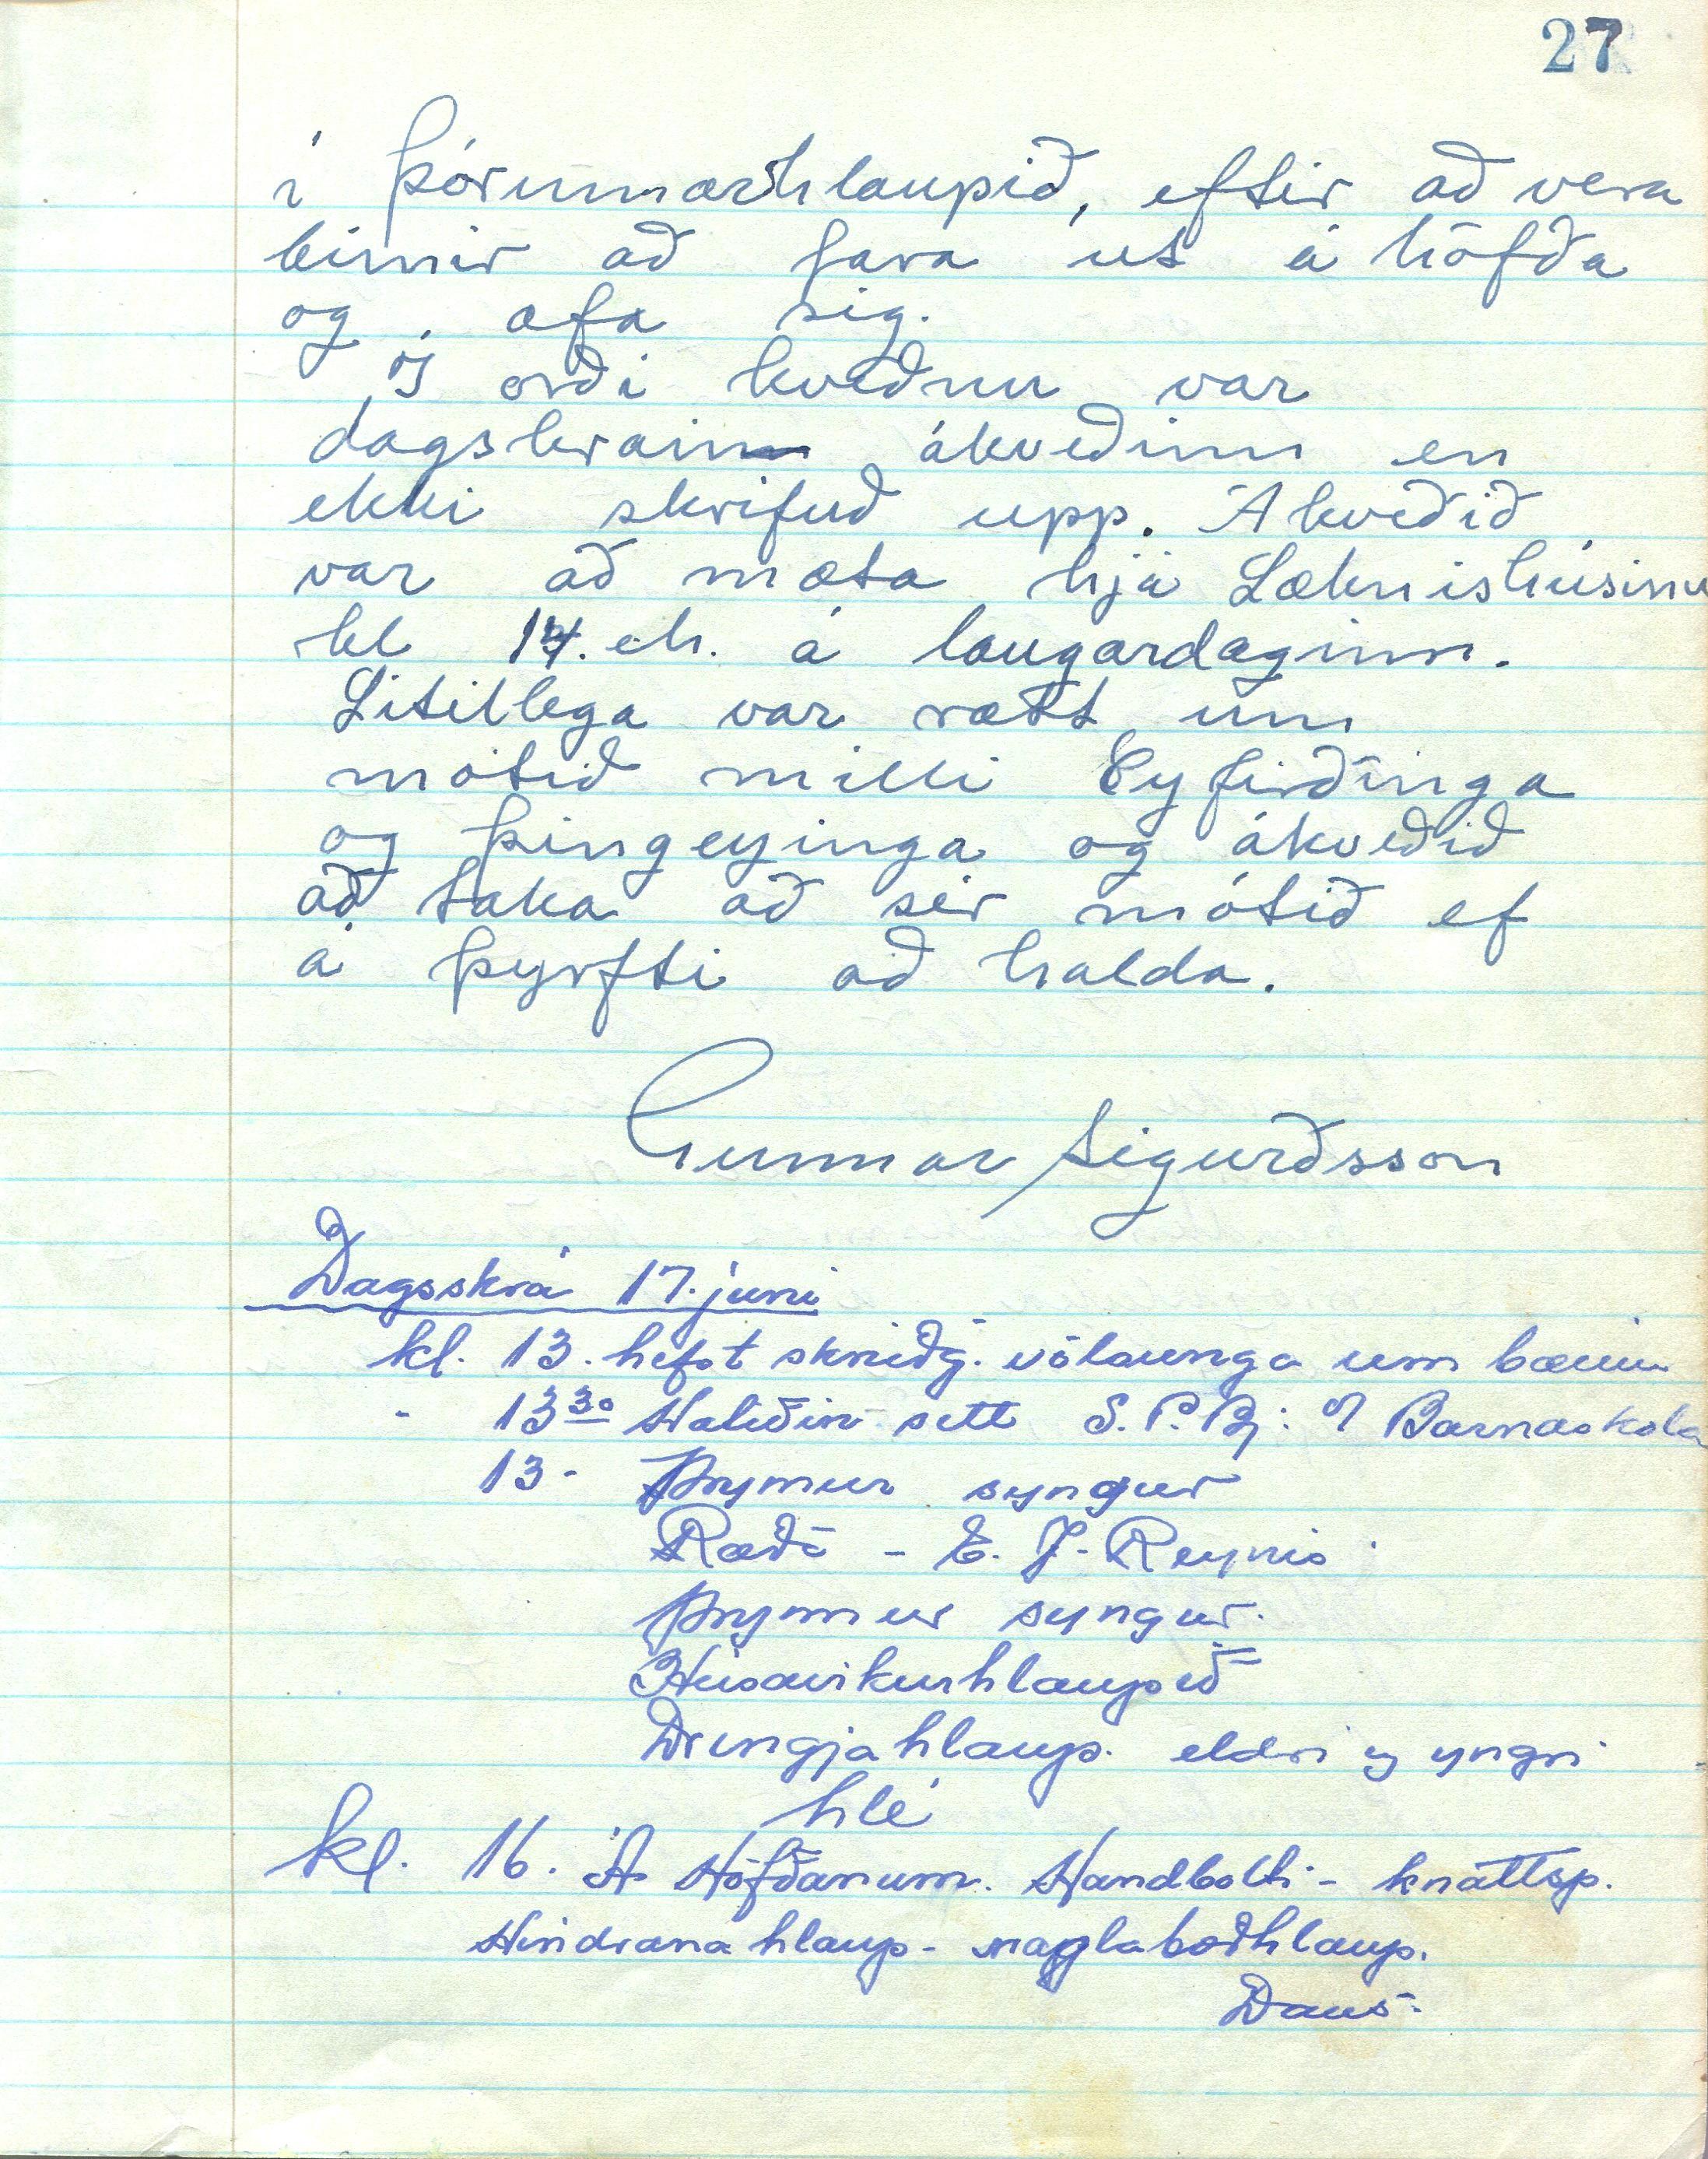 27
í Þórunnarhlaupið, eftir að vera
búnir að fara út á höfða
og æfa sig.
Í orði kveðnu var
dagskráin ákveðinn en
ekki skrifuð upp. Ákveðið
var að mæta hjá Læknishúsinu
kl 14. eh. á laugardaginn.
Lítillega var rætt um
mótið milli Eyfirðinga
og Þingeyinga og ákveðið
að taka að sér mótið ef
á þyrfti að halda.
Gunnar Sigurðsson
Dagsskrá 17. júni
kl. 13. hefst skrúðg. völsunga um bæinn
- 13³⁰ Hátíðin sett S.P.Bj: Í Barnaskóla
13- Þrymur syngur
Ræða - E. J. Reynis
Þrymur syngur.
Húsavíkurhlaupið
Drengjahlaup. eldri og yngri
hlé
kl. 16. Á Höfðanum. Handbolti - knattsp.
Hindranahlaup - naglaboðhlaup.
Dans.